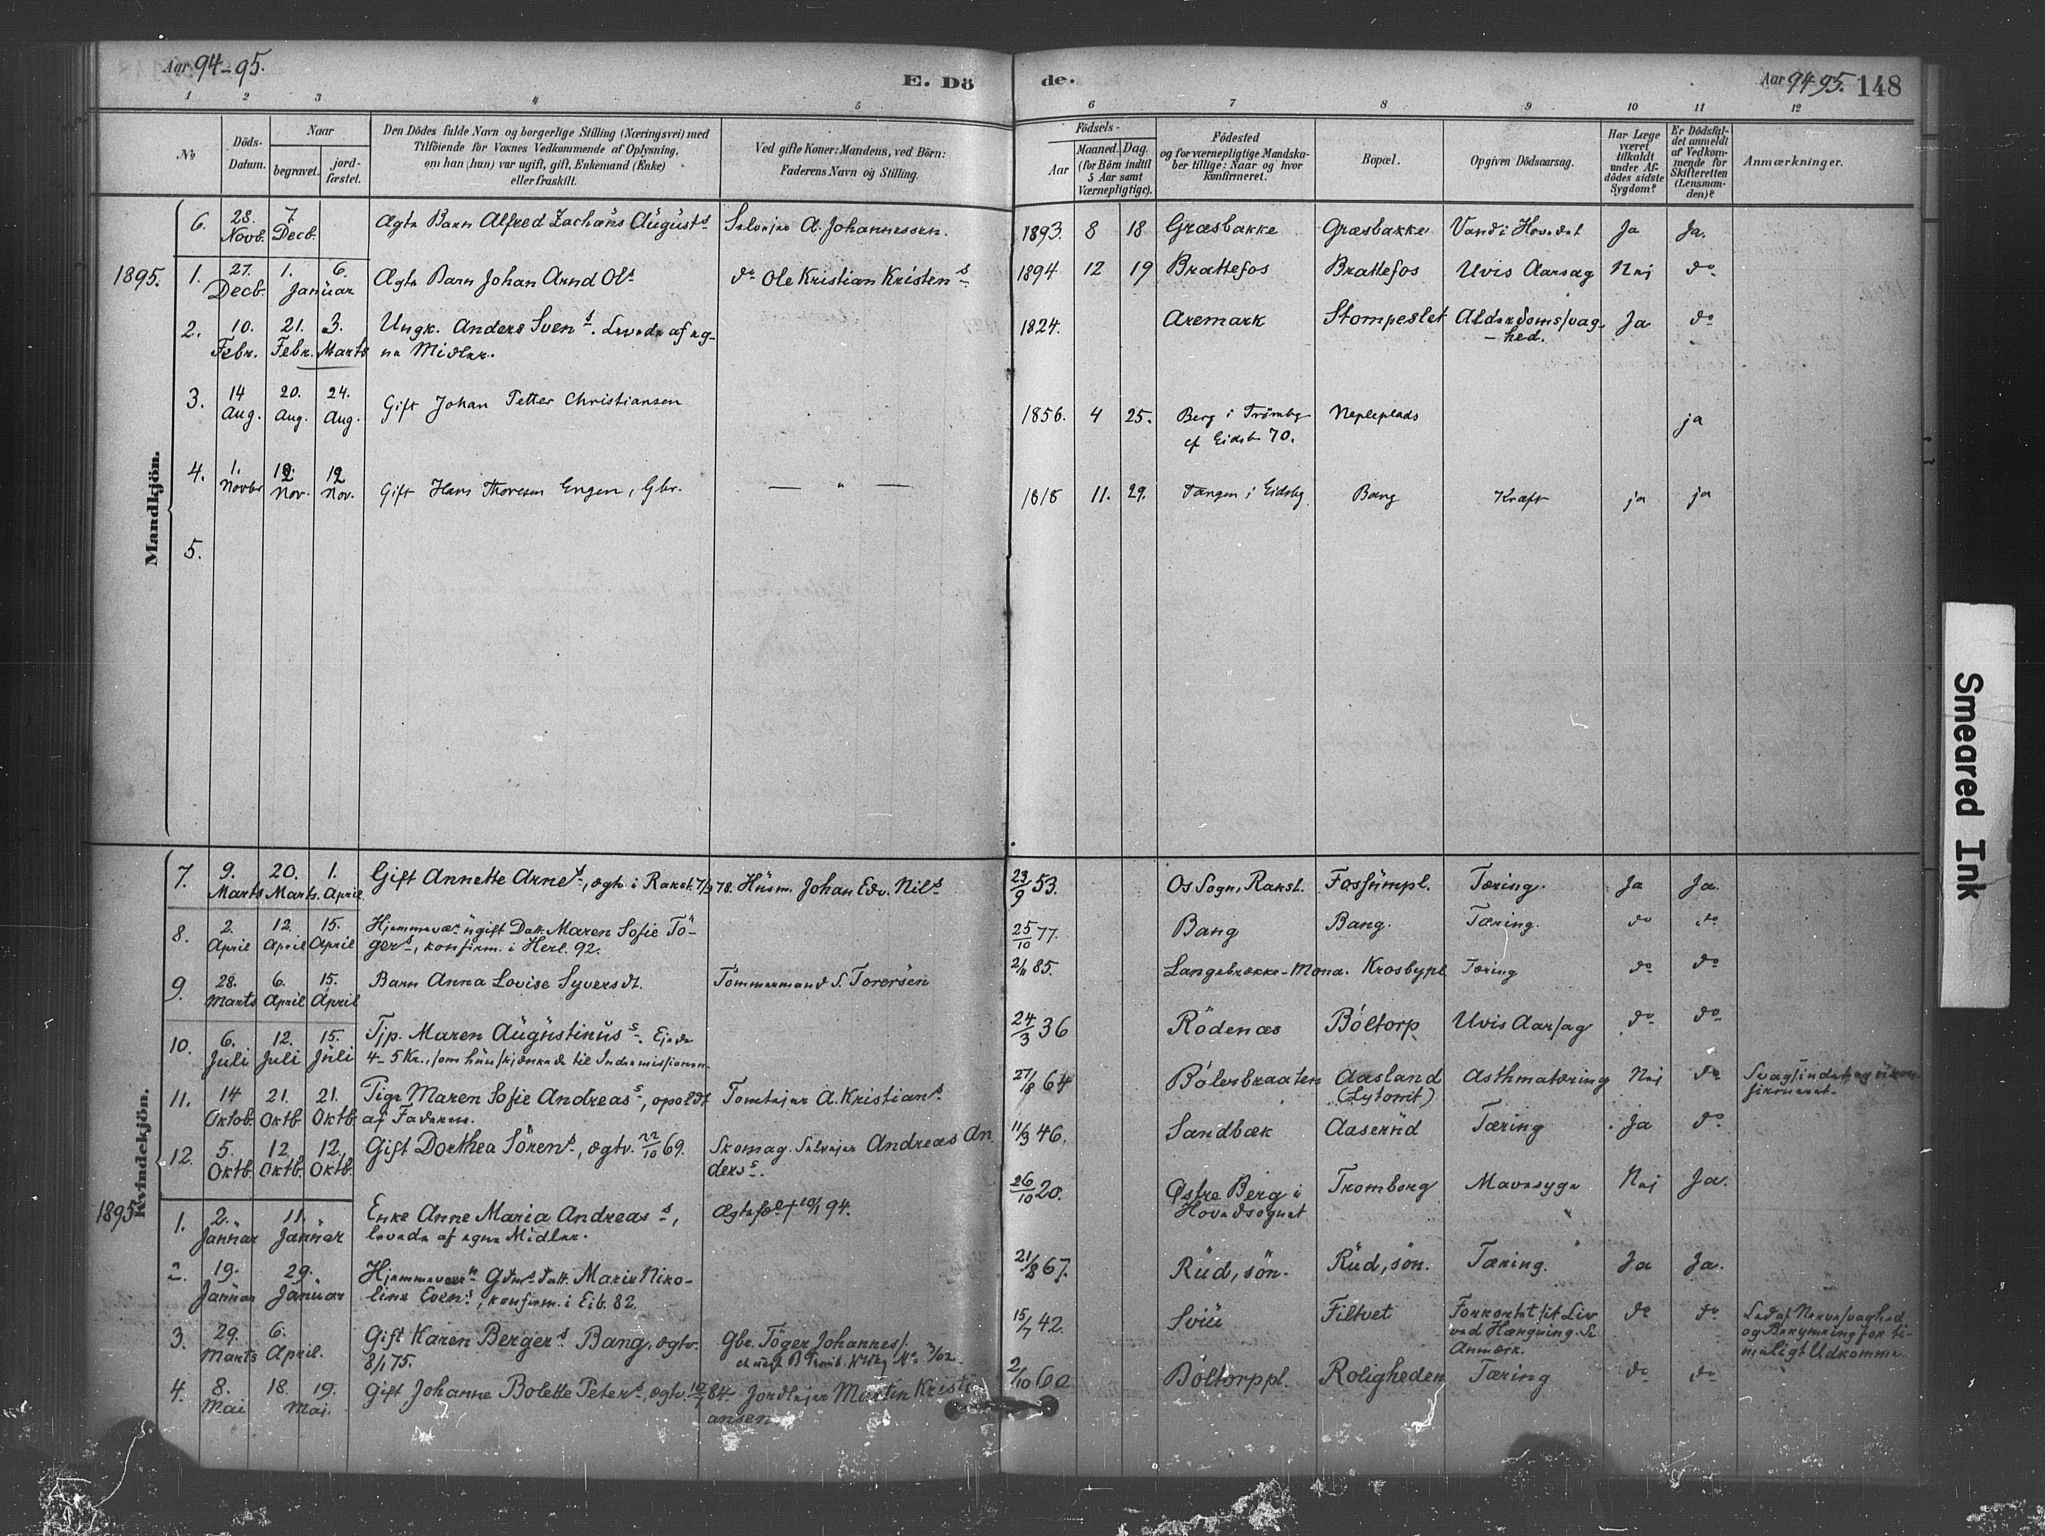 Aar 94-95.
E. Dö
de.
Aar 94-95. 148
1 2 3 4 5 6 7 8 9 10 11 12
No
Döds-
Datum.
Naar
begravet.
jord-
fæstet.
Den Dödes fulde Navn og borgerlige Stilling (Næringsvei) med
Tilföiende for Voxnes Vedkommende af Oplysning,
om han (hun) var ugift, gift, Enkemand (Enke)
eller fraskilt.
Ved gifte Koner: Mandens, ved Börn:
Faderens Navn og Stilling.
Födsels-
Aar
Maaned. Dag.
(for Börn indtil
5 Aar samt
Værnepligtige).
Födested
og for værnepligtige Mandska-
ber tillige: Naar og hvor
konfirmeret.
Bopæl.
Opgiven Dödsaarsag.
Har Læge
været
tilkaldt
under Af-
dödes sidste
Sygdom?
Er Dödsfal-
det anmeldt
af Vedkom-
mende for
Skifteretten
(Lensman-
den)?
Anmærkninger.
Mandkjön.
6. 28. Novb. 7. Decb. Ægte Barn Alfred Zachæus Augusts Selveier A. Johannessen. 1893. 8 18 Græsbakke Græsbakke Vand i Hovedet Ja Ja.
1895. 1. 27. Decb. 1. 6. Januar Ægte Barn Johan Arnd Ols do Ole Kristian Kristens 1894 12 19 Brattefos Brattefos Uvis Aarsag Nej do
2. 10. Febr. 21. Febr. 3. Marts Ungk. Anders Svens. Levede af eg-
ne Midler. 1824. Aremark Stompeslet Alderdomssvag-
hed. Ja do
3. 14 Aug. 20. Aug. 24. Aug. Gift Johan Petter Christiansen 1856. 4 25. Berg i Trömbg
cf Eidsb 70. Nepleplads ja
4. 1. Novbr 12. Nov. 12 Nov. Gift Hans Thoresen Engen, Gbr. — " — 1818 11. 29. Tangen i Eidsbg Bang Kræft ja ja
5.
Kvindekjön.
7. 9. Marts 20. Marts. 1. April Gift Annette Arnes, ægtv. i Rakst. 7/9 78. Husm. Johan Edv. Nils 23/9 53. Os Sogn, Rakst. Fossumpl. Tæring. Ja Ja.
8. 2. April 12. April 15. April Hjemmevær ugift Datt. Maren Sofie Tö-
gers, konfirm. i Herl. 92. 25/10 77. Bang Bang. Tæring. do do
9. 28. Marts 6. April 15. April Barn Anna Lovise Syversdt. Tömmermand S. Torersen 2/11 85. Langebrække-Mona. Krosbypl Tæring do do
10. 6. Juli 12. Juli 15. Juli Tjp. Maren Augustinuss. Ejede
4-5 Kr., som hun skjænkede til Indremissionen 24/3 36 Rödenæs Böltorp Uvis Aarsag do do
11. 14 Oktob. 21. Oktb 21. Oktb. Pige Maren Sofie Andreass, opoldt
af Faderen. Tomtejer A. Kristians. 27/8 64 Bölerbraaten Aasland Asthmatæring Nej do
12. 5. Oktb. 12 Oktb. 12. Oktb. Gift Dorthea Sörens, ægtv. 22/10 69. Skomag. Selvejer Andreas An
derss. 11/3 46. Sandbæk Aaserud Tæring Ja do
1895 1. 2. Januar 11. Januar Enke Anne Maria Andreass,
levede af egne Midler. 26/10 20. Østre Berg i
Hovedsognet Tromborg Mavesyge Nej Ja.
2. 19. Januar 29. Januar Hjemmevær Gdms Datt. Marie Niko-
line Evens, konfirm. i Eib. 82. 21/8 67. Rüd, sön. Rüd, sön. Tæring. Ja Ja.
3. 29. Marts 6. April. Gift Karen Bergers Bang, ægtv.
8/1 75. Gbr. Töger Johannes/. 15/7 42. Sviu Filtvet Forkortet sit Liv
ved Hængning. Se
Anmærk. do do Led af Nervesvaghed
og Bekymring for ti-
meligt Udkomme
4. 8. Mai 18. 19. Mai. Gift Johanne Bolette Peters, ægtv. 84. Jordlejer Martin Kristi
ansen 2/10 60 Böltorppl. Roligheden Tæring do do
Smeared Ink